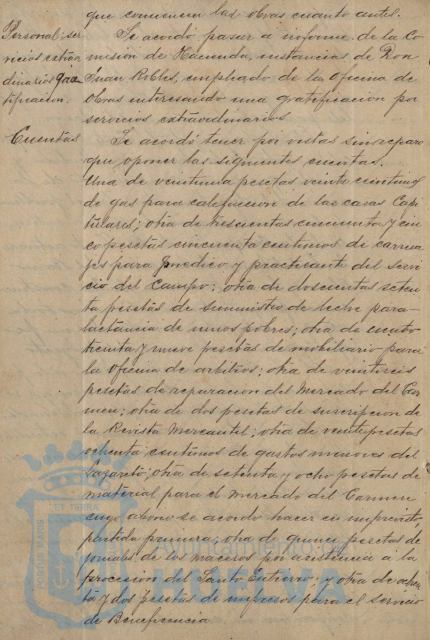 que comiencen las obras cuanto antes.
Personal: ser
vicios extraor
dinarios gra
tificacion.
Se acordó pasar a informe de la Co
misión de Hacienda, instancias de Don
Juan Robles, empleado de la Oficina de
Obras interesando una gratificación por
servicios extraordinarios.
Cuentas
Se acordó tener por vistas sin reparo
que oponer las siguientes cuentas.
Una de veintiuna pesetas veinte centimos
de gas para calefaccion de las casas Capi
tulares; otra de trescientas cincuenta y cin
co pesetas cincuenta centimos de carrua
jes para medico y practicante del servi
cio del Campo; otra de doscientas seten
ta pesetas de suministro de leche para
lactancia de niños pobres; otra de ciento
treinta y nueve pesetas de mobiliario para
la oficina de arbitrios; otra de veintiseis
pesetas de reparacion del Mercado del Car
men; otra de dos pesetas de suscripcion de
la Revista Mercantil; otra de veinte pesetas
ochenta centimos de gastos menores del
Lazareto; otra de setenta y ocho pesetas de
material para el mercado del Carmen
cuyo abono se acordó hacer en imprevisto,
partida primera; otra de quince pesetas de
jornales de los maceros por asistencia á la
procesion del Santo Entierro; y otra de ochen
ta y dos pesetas de impresos para el servicio
de Beneficencia